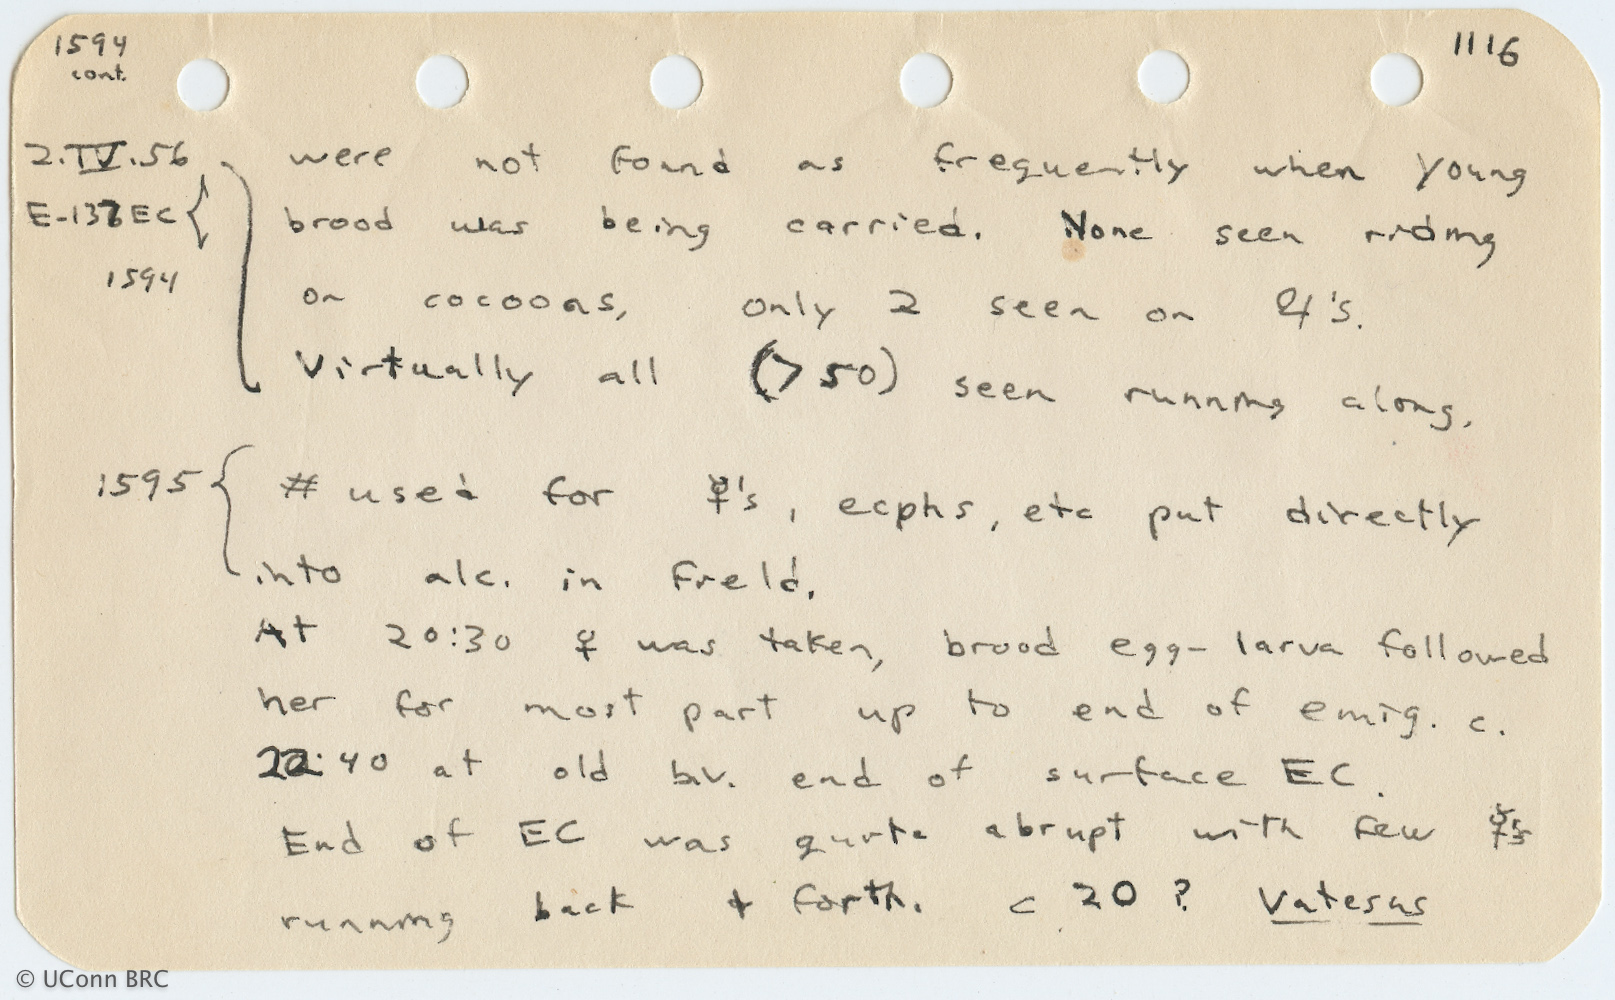 1594
cont.
1116
2.IV.56 were not found as frequently when young
E-137EC brood was being carried. None seen riding
1594
on cocoons, only 2 seen on ♃'s.
Virtually all (>50) seen running along.
1595 # used for ☿'s, ecphs, etc put directly
into alc. in field.
At 20:30 ♀ was taken, brood egg-larva followed
her for most part up to end of emig. c.
22:40 at old biv. end of surface EC.
End of EC was quite abrupt with few ☿'s
running back + forth. c 20? Vatesus
© UConn BRC